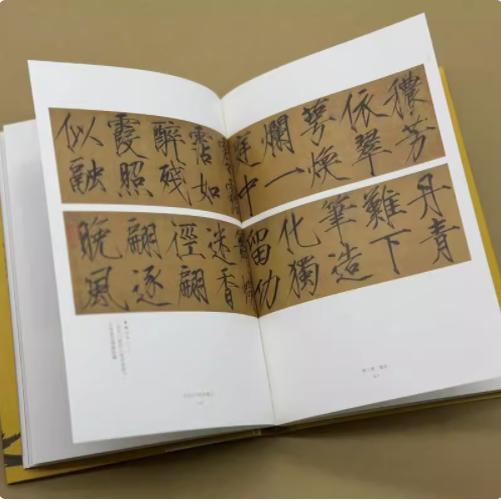 穠芳
依翠
萼煥
爛一
庭中
霑如
醉殘
霞照
似融
丹青
難下
筆造
化獨
留功
迷香
徑翩
翩逐
晚風